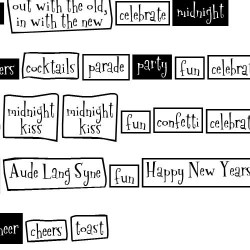 out with the old,
in with the new
celebrate midnight
cocktails parade party fun
midnight kiss midnight kiss fun confetti
Aude Lang Syne fun Happy New Years
cheers toast